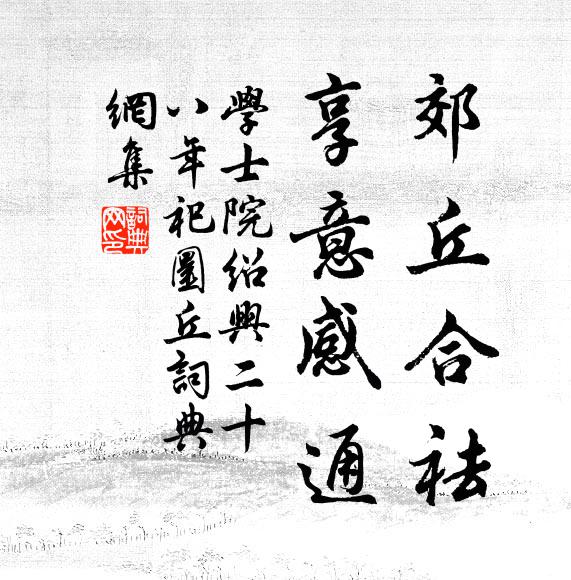 郊丘合祛
享意感通
學士院紹興二十
八年祀圜丘詞典
網集
詞典網印